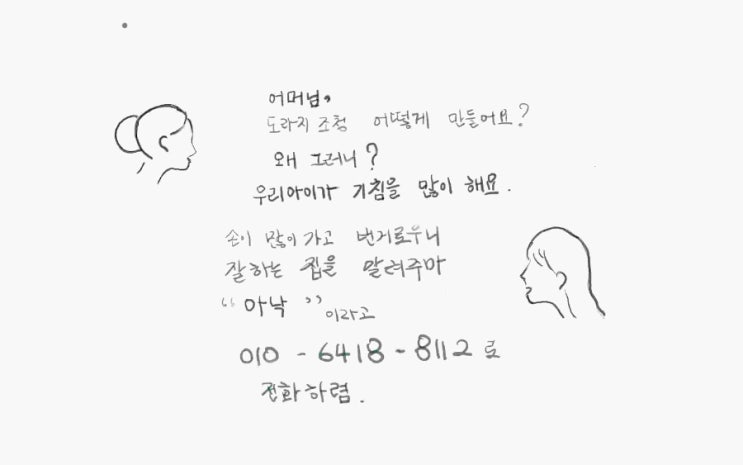 어머님,
도라지 조청 어떻게 만들어요?
왜 그러니?
우리아이가 기침을 많이 해요.
손이 많이 가고 번거로우니
잘하는 집을 알려주마
“아낙”이라고
010-6418-8112로
전화하렴.